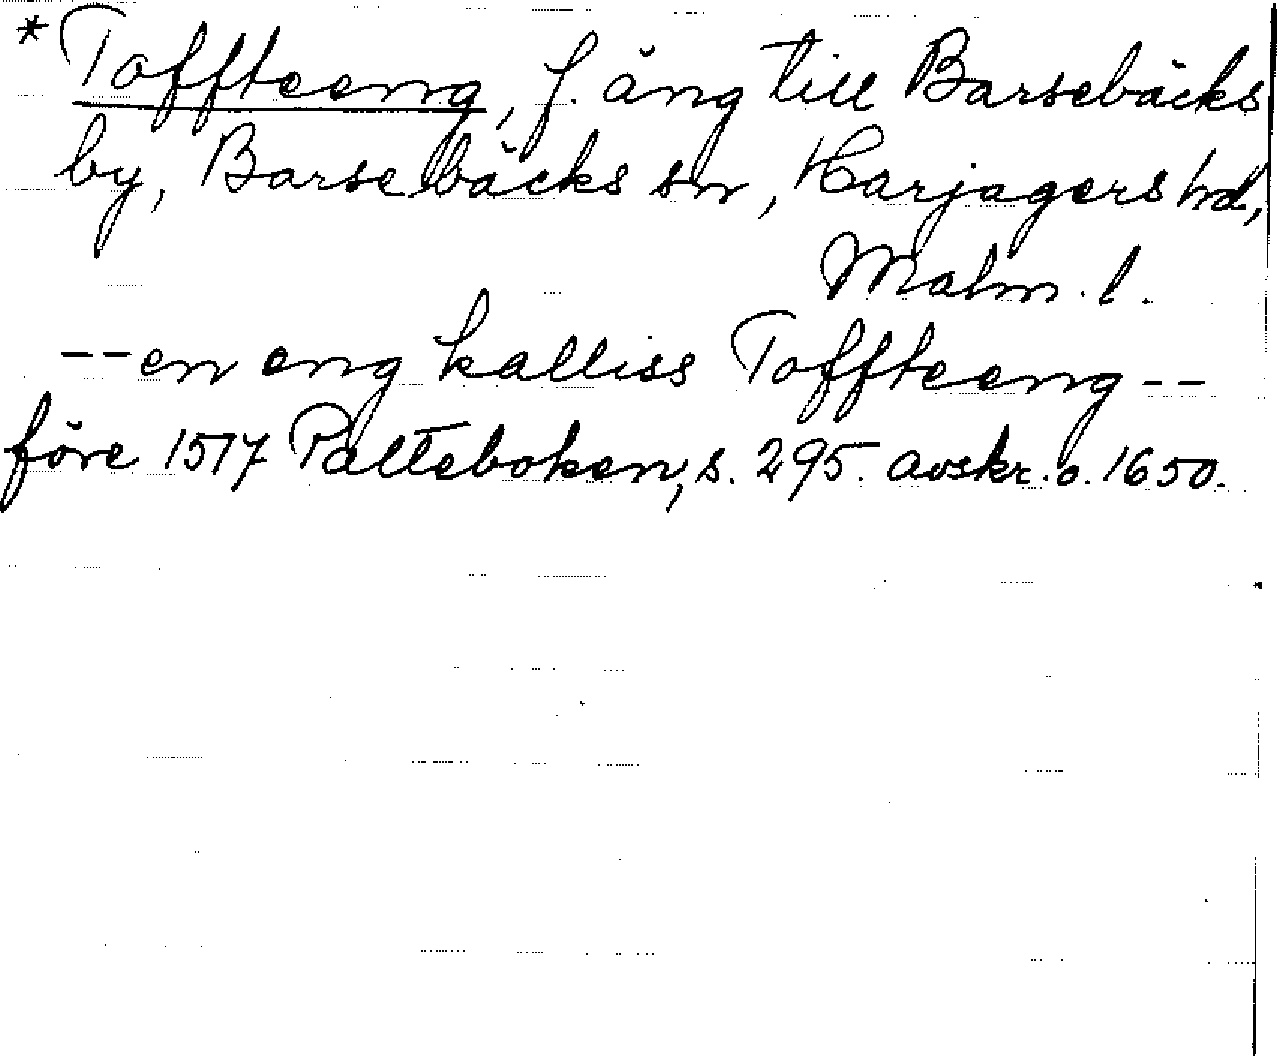 *Toffteeng, f. äng till Barsebäcks
by, Barsebäcks sn, Harjagers hd,
Malm. l.
--en eng kalliss Toffteeng--
före 1517 Palteboken, s. 295. avskr. o. 1650.